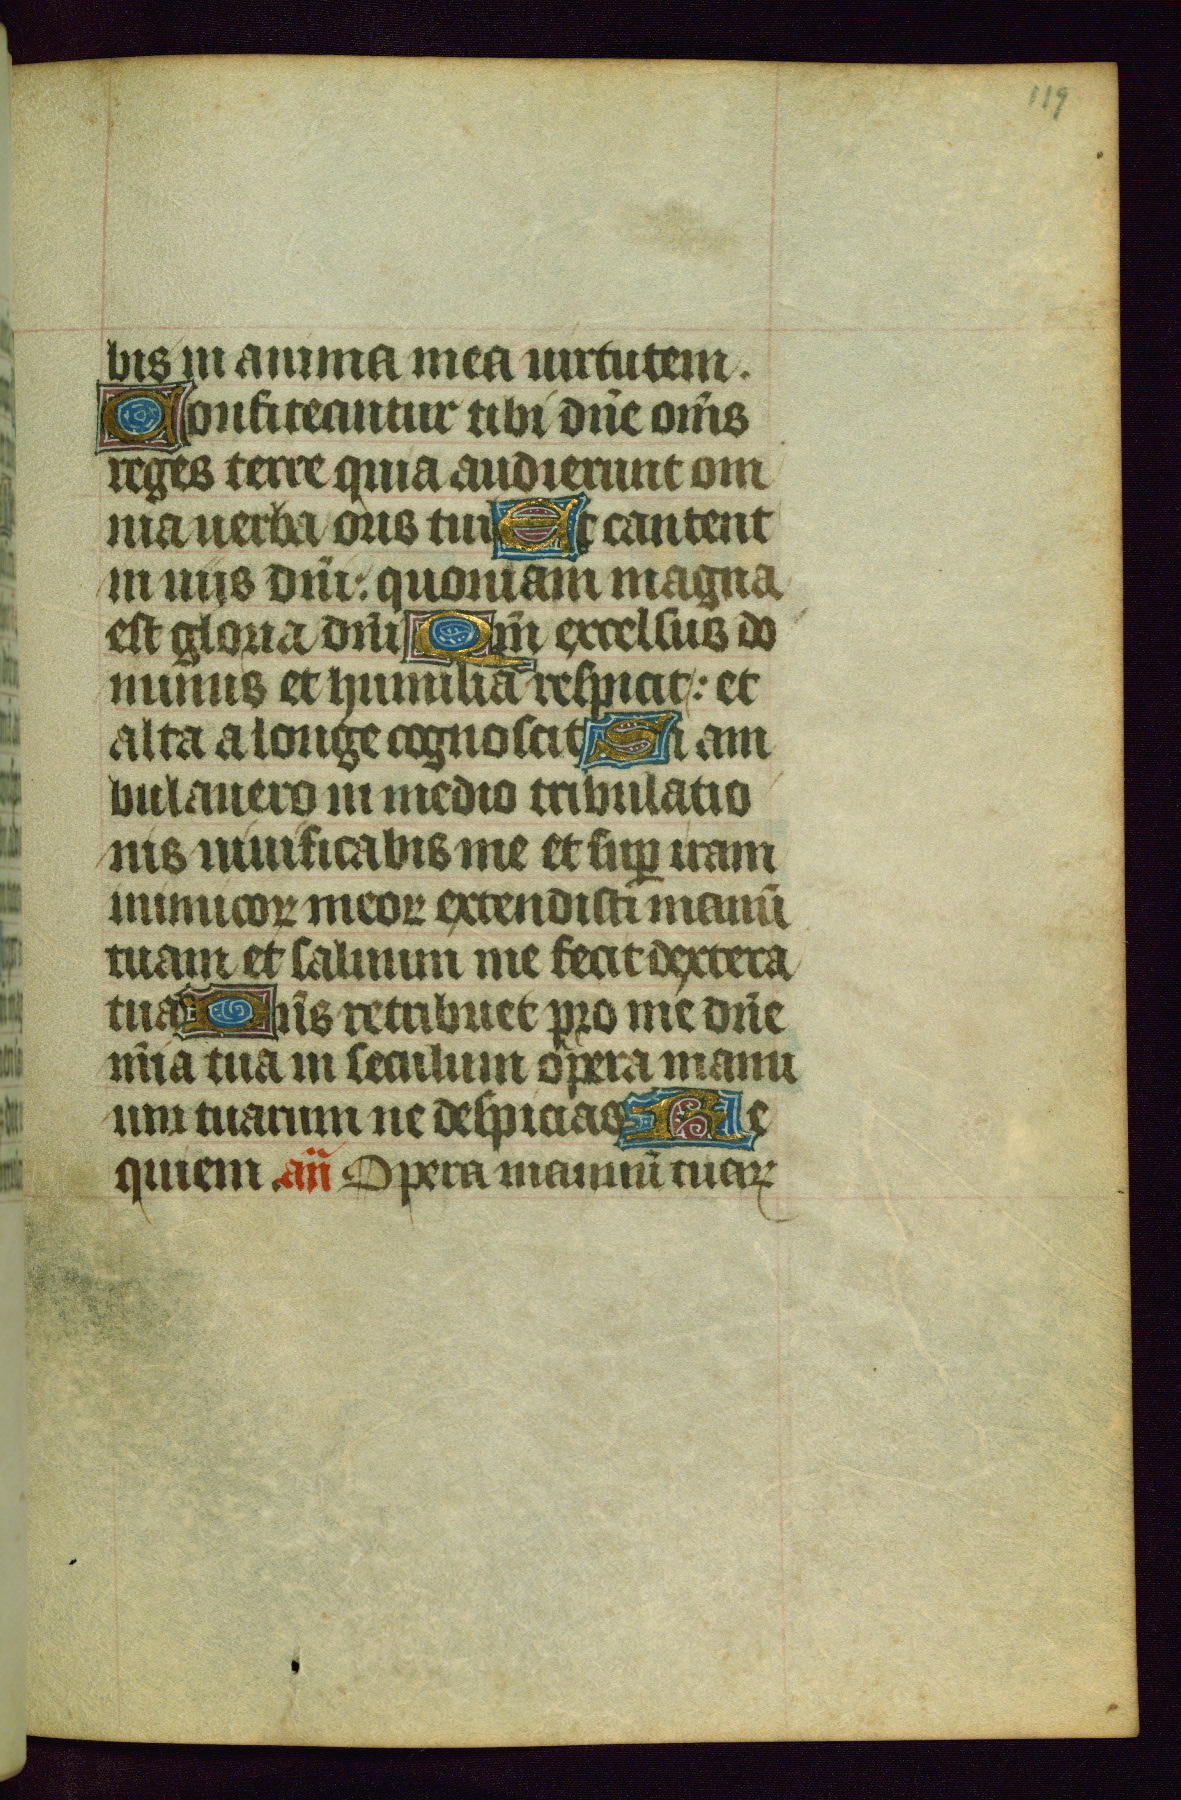 119
bis in anima mea uirtutem.
Confiteantur tibi dñe om̃s
reges terre quia audierunt om
nia uerba oris tui Et cantent
in uijs dñi: quoniam magna
est gloria dñi Qm̃ excelsus do
minus et humilia respicit: et
alta a longe cognoscit Si am
bulauero in medio tribulatio
nis uiuificabis me et suꝑ iram
inimicoꝝ meoꝝ extendisti manũ
tuam et saluum me fecit dextera
tua Dñs retribuet pro me dñe
mĩa tua in seculum opera manu
um tuarum ne despicias Re
quiem .añ Opera manuũ tuaꝝ